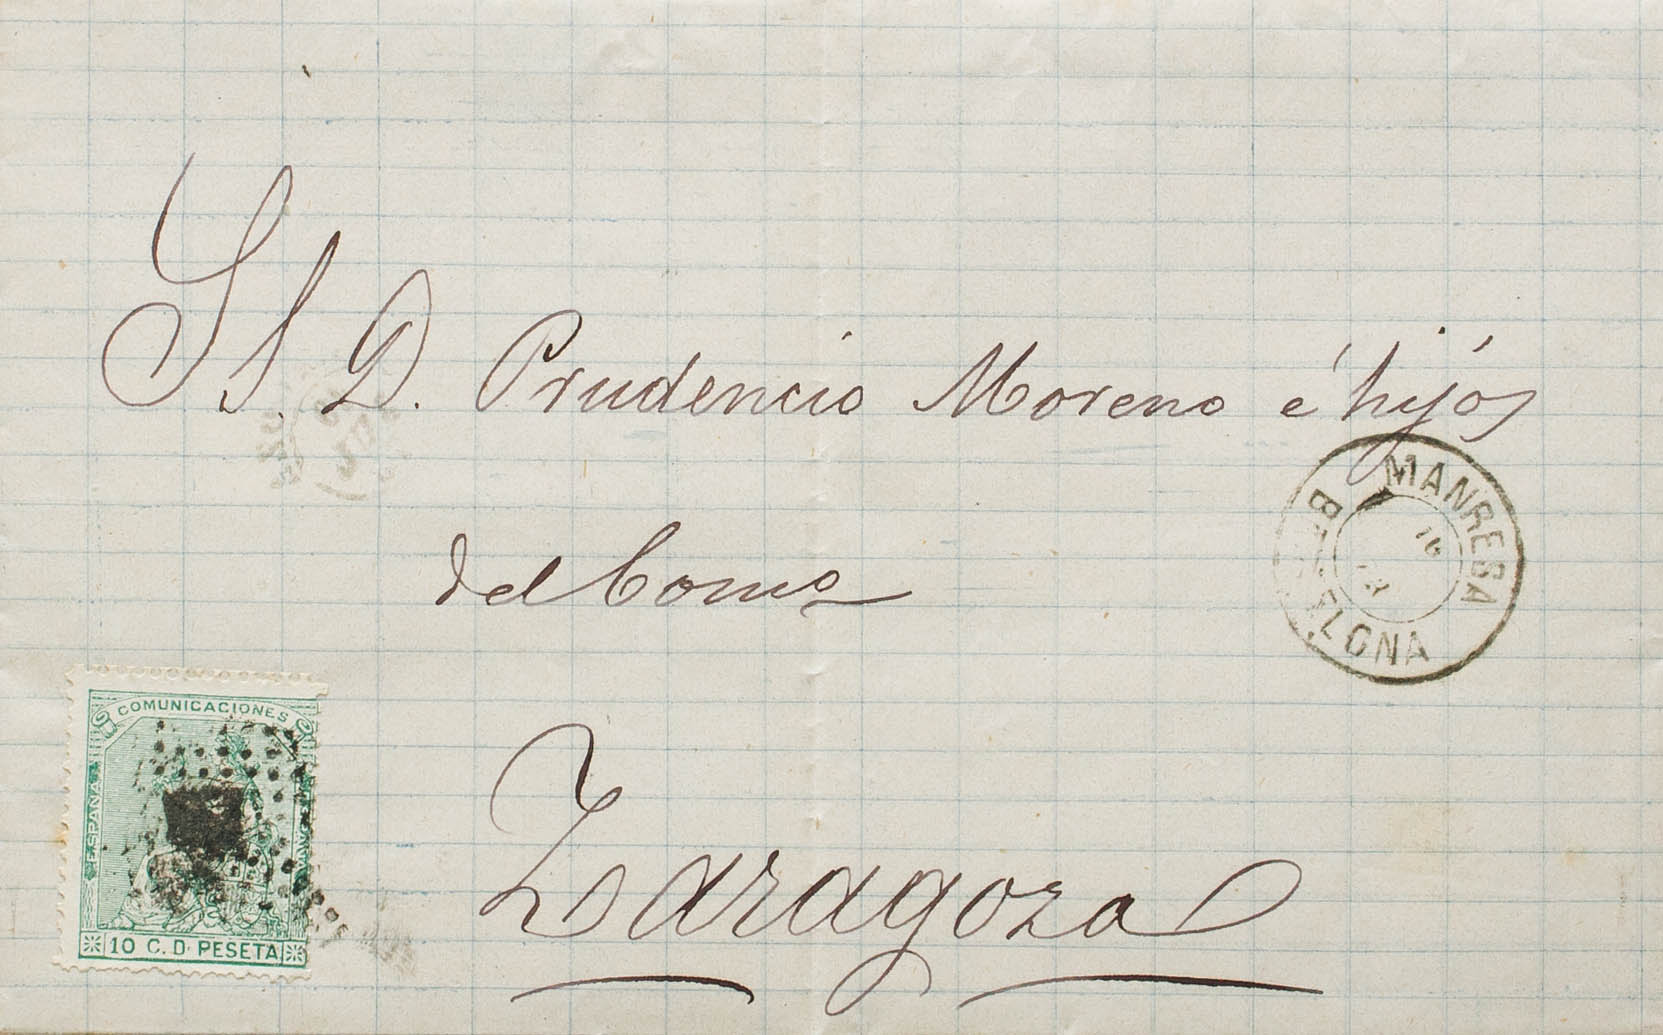 Ss. D. Prudencio Moreno é hijos
del Como
Zaragoza
MANRESA
COMUNICACIONES
ESPAÑA
10 C. D. PESETA